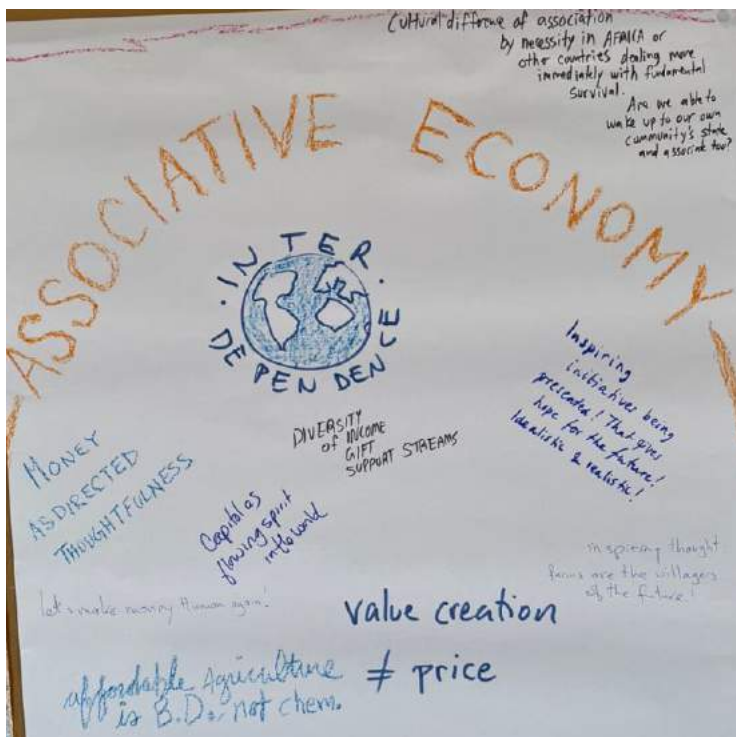 Cultural difference of association
by necessity in AFRICA or
other countries dealing more
immediately with fundamental
survival.
Are we able to
wake up to our own
community's state
and associate too?
ASSOCIATIVE ECONOMY
INTER
DEPENDENCE
Inspiring
initiatives being
presented! That gives
hope for the future!
Idealistic & realistic!
DIVERSITY
of INCOME
GIFT
SUPPORT STREAMS
MONEY
AS DIRECTED
THOUGHTFULNESS
Capital as
flowing spirit
in the world
inspiring thought
farms are the villages
of the future!
let's make money Human again!
value creation
≠ price
affordable Agriculture
is B.D., not chem.